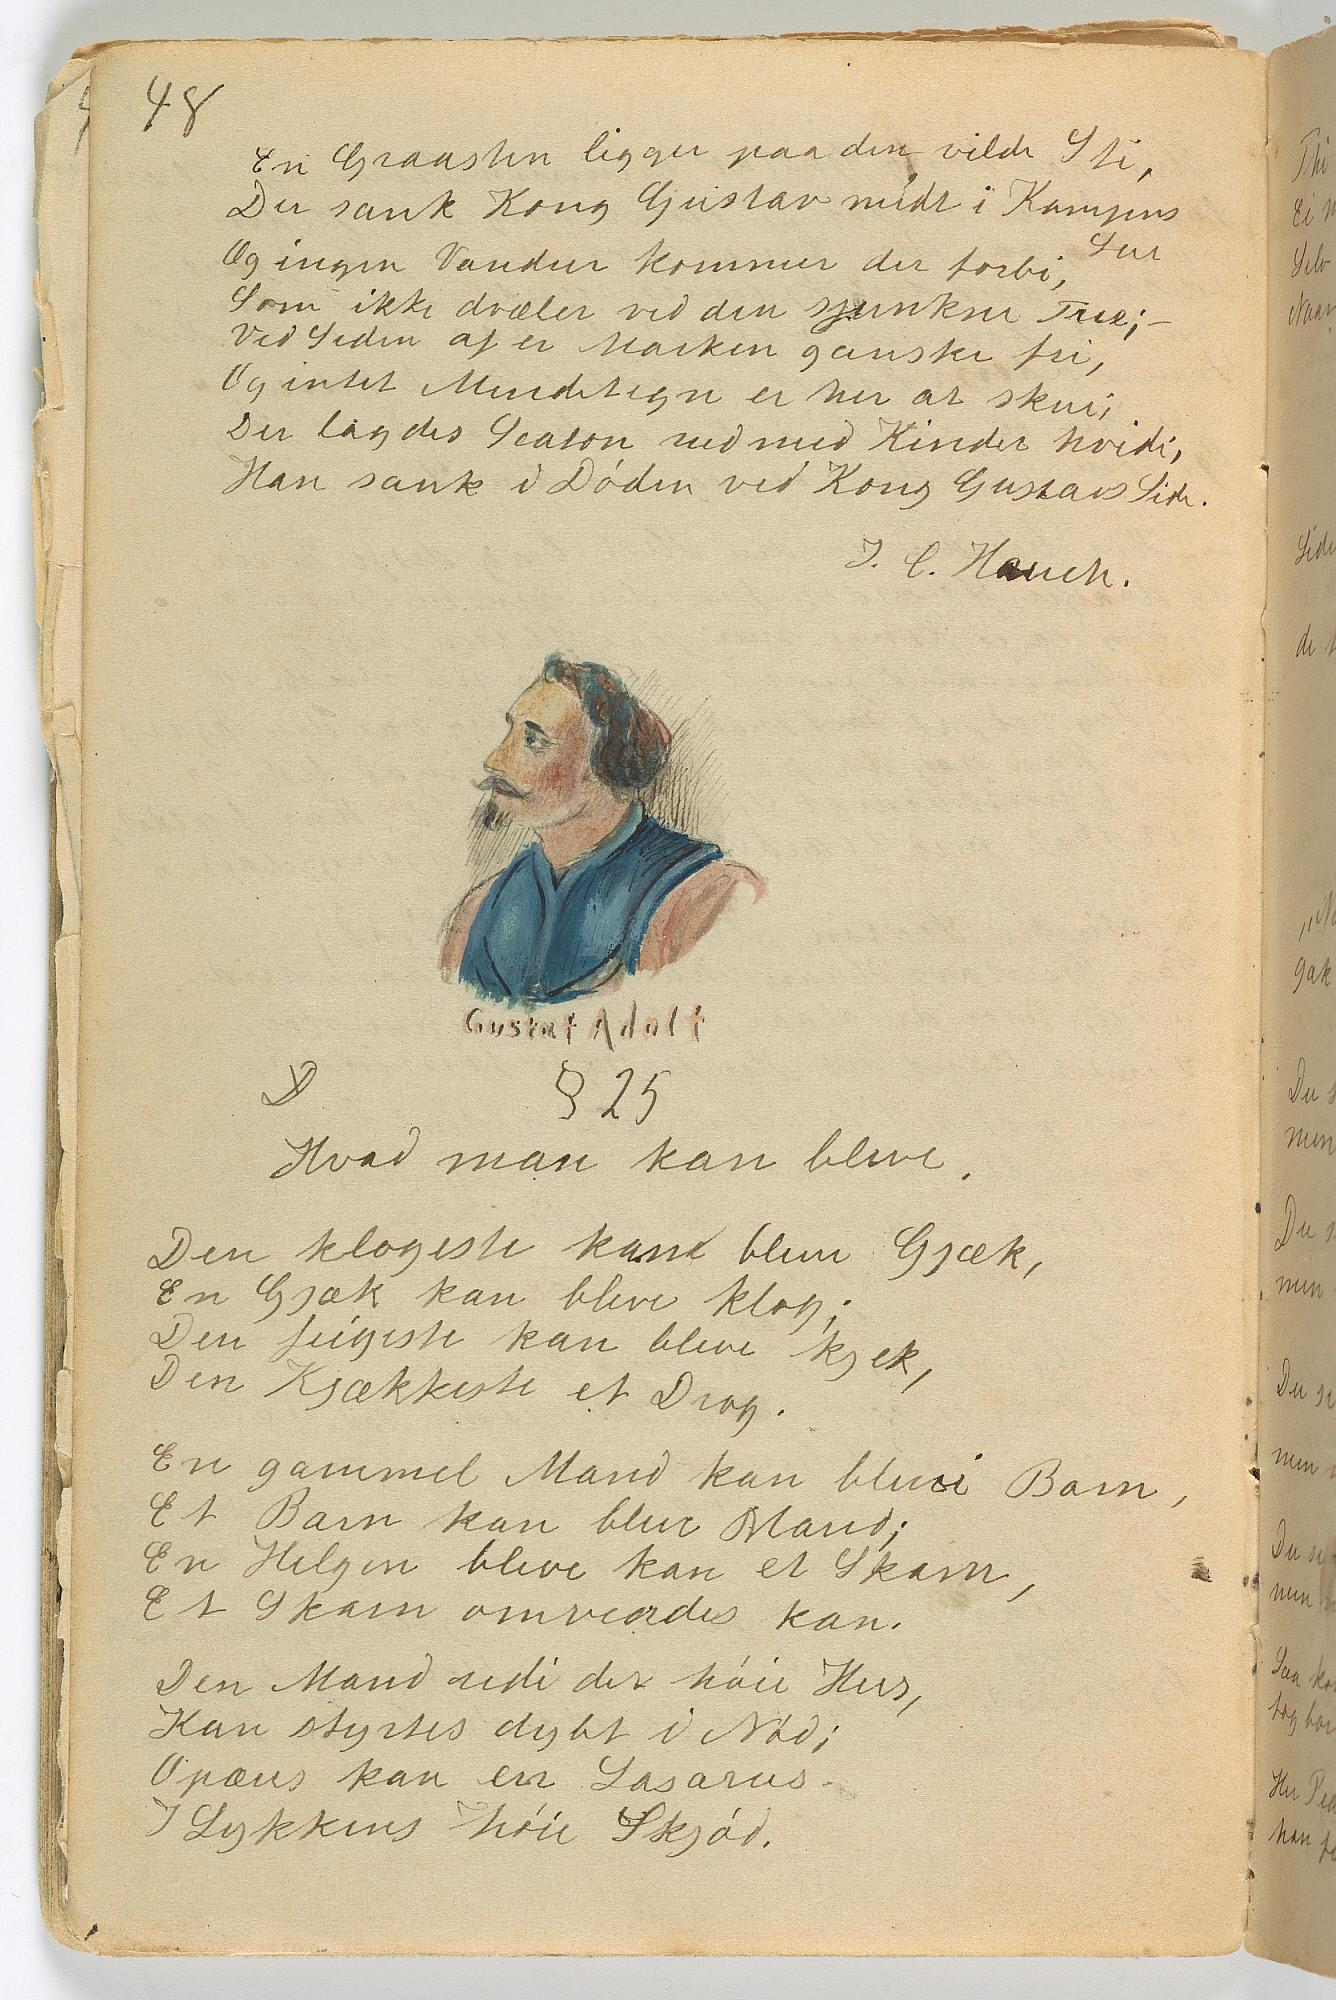 48
En Graasten ligger paa den vilde Sti,
Der sank Kong Gustav midt i Kampens
Leer
Og ingen Vandrer kommer der forbi,
Som ikke dvæler ved den sjunkne Træ;-
Ved Siden af er Marken ganske fri,
Og intet Mindetegn er her at skue;
Der lagdes ned med Kinder hvide,
Han sank i Døden ved Kong Gustavs Side.
J. C. Hauch.
Gustaf Adolf
D § 25
Hvad man kan blive.
Den klogeste kan blive Gjæk,
En Gjæk kan blive klog;
Den feigeste kan blive kjek,
Den Kjækkeste et Drog.
En gammel Mand kan blive i Barn,
Et Barn kan blive Mand;
En Helgen blive kan et Skarn,
Et Skarn omvendes kan.
Den Mand udi det høie Hus,
Kan styrtes dybt i Nød;
Opæus kan en Lasarus
I Lykkens høie Skjød.